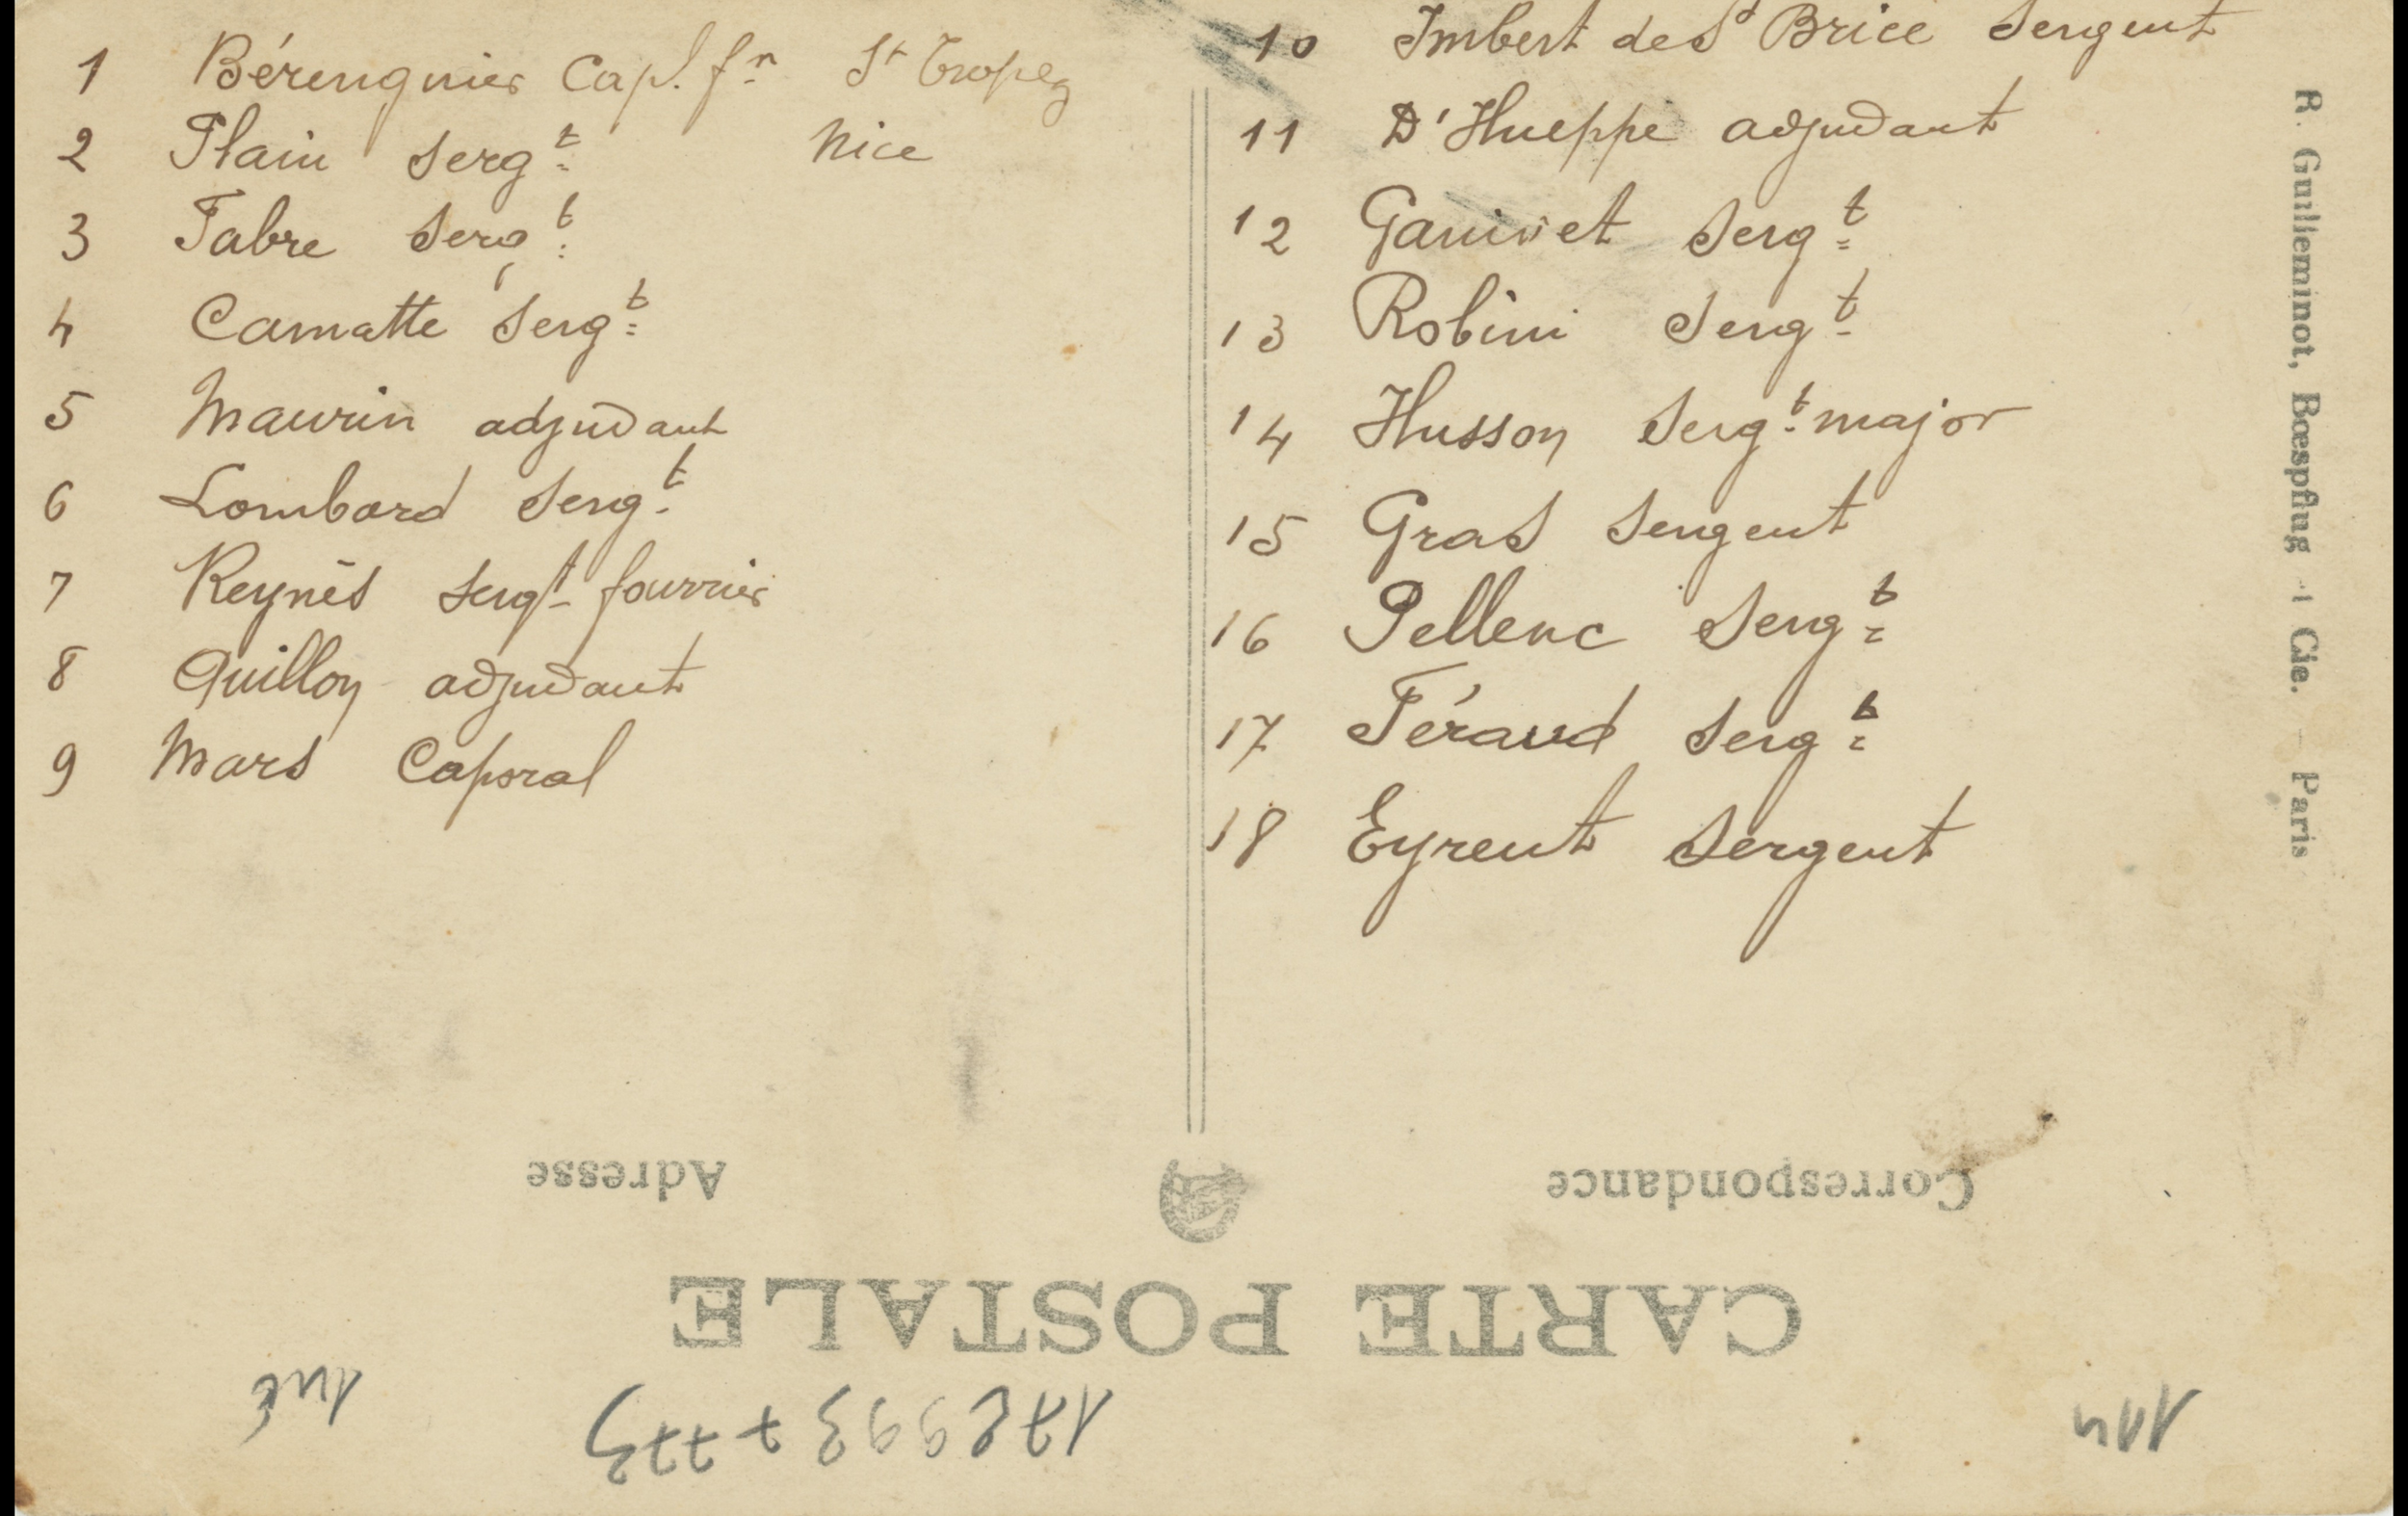 1 Bérenguier Cap. f.n St Tropez
2 Plain Sergt Nice
3 Fabre Sergt
4 Camatte Sergt
5 Maurin adjudant
6 Lombard Sergt
7 Reynès Sergt fourrier
8 Quilloy adjudant
9 Mars Caporal
10 Imbert des St Brice Sergent
11 D'Hueppe adjudant
12 Ganivet Sergt
13 Robini Sergt
14 Husson Sergt major
15 Gras Sergent
16 Pellenc Sergt
17 Féraud Sergt
18 Eyreut Sergent
R. Guilleminot, Bœspflug et Cie. - Paris
Adresse
Correspondance
CARTE POSTALE